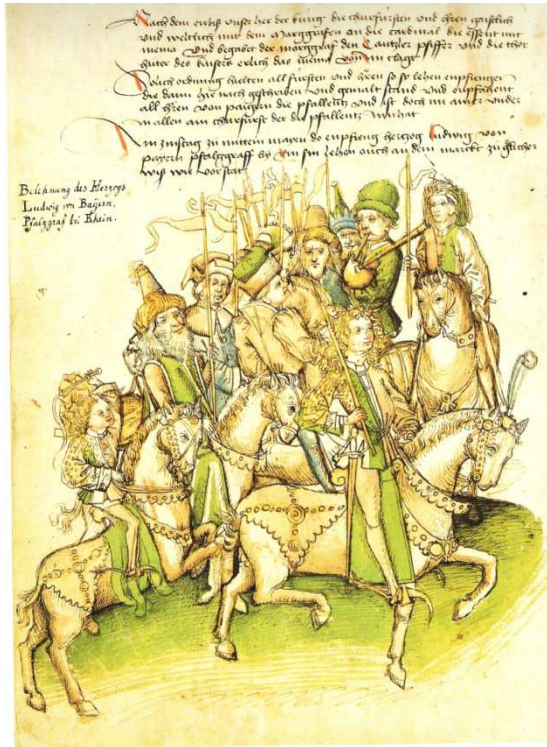 Nach dem enbiß unser her der kung die churfürsten und ehren geistlich
und weltlich mit dem Marggrafen on die cardinal die essent mit
nieman Und begabet der marggraf den Cantzler pfiffer und die thor
huter des kaisers erlich das nieman von im clagt
Sölich ordnung hielten all fürsten und heren so lehen enpfiengen
die dann hie nach geschriben und gemalt stand und enpfiehent
all heren von paigern die pfallentz und ist doch nu ainer under
in allen ain churfürst der die pfallentz Inn hat
Am zinstag zu mittem mayen do enpfieng hertzog Ludwig von
payern pfaltzgraff by Rin sin lehen ouch an dem marckt zu glicher
wiß wie vor stat
Belehnung des Herzogs
Ludwig von Baijern,
Pfalzgraf bei Rhein.